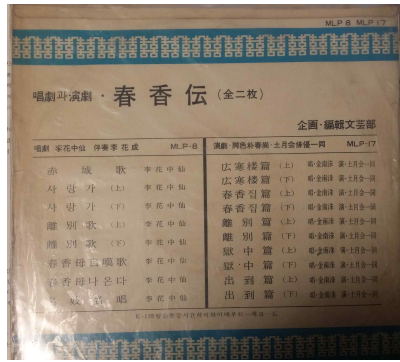 MLP 8 MLP 17
唱劇과演劇・春香伝（全二枚）
企画・編輯文芸部
唱劇 李花中仙 伴奏李花成 MLP-8
赤城歌 李花中仙
사랑가（上） 李花中仙
사랑가（下） 李花中仙
離別歌（上） 李花中仙
離別歌（下） 李花中仙
春香母自嘆歌 李花中仙
春香母나온다 李花中仙
李花中仙
演劇・土月会俳優一同 MLP-17
広寒楼篇（上） 唱・金南洙 演・土月会一同
広寒楼篇（下） 唱・金南洙 演・土月会一同
春香집篇（上） 唱・金南洙 演・土月会一同
春香집篇（下） 唱・金南洙 演・土月会一同
離別篇（上） 唱・金南洙 演・土月会一同
離別篇（下） 唱・金南洙 演・土月会一同
獄中篇（上） 唱・金南洙 演・土月会一同
獄・中篇（下） 唱・金南洙 演・土月会一同
出到篇（上） 唱・金南洙 演・土月会一同
出到篇（下） 唱・金南洙 演・土月会一同